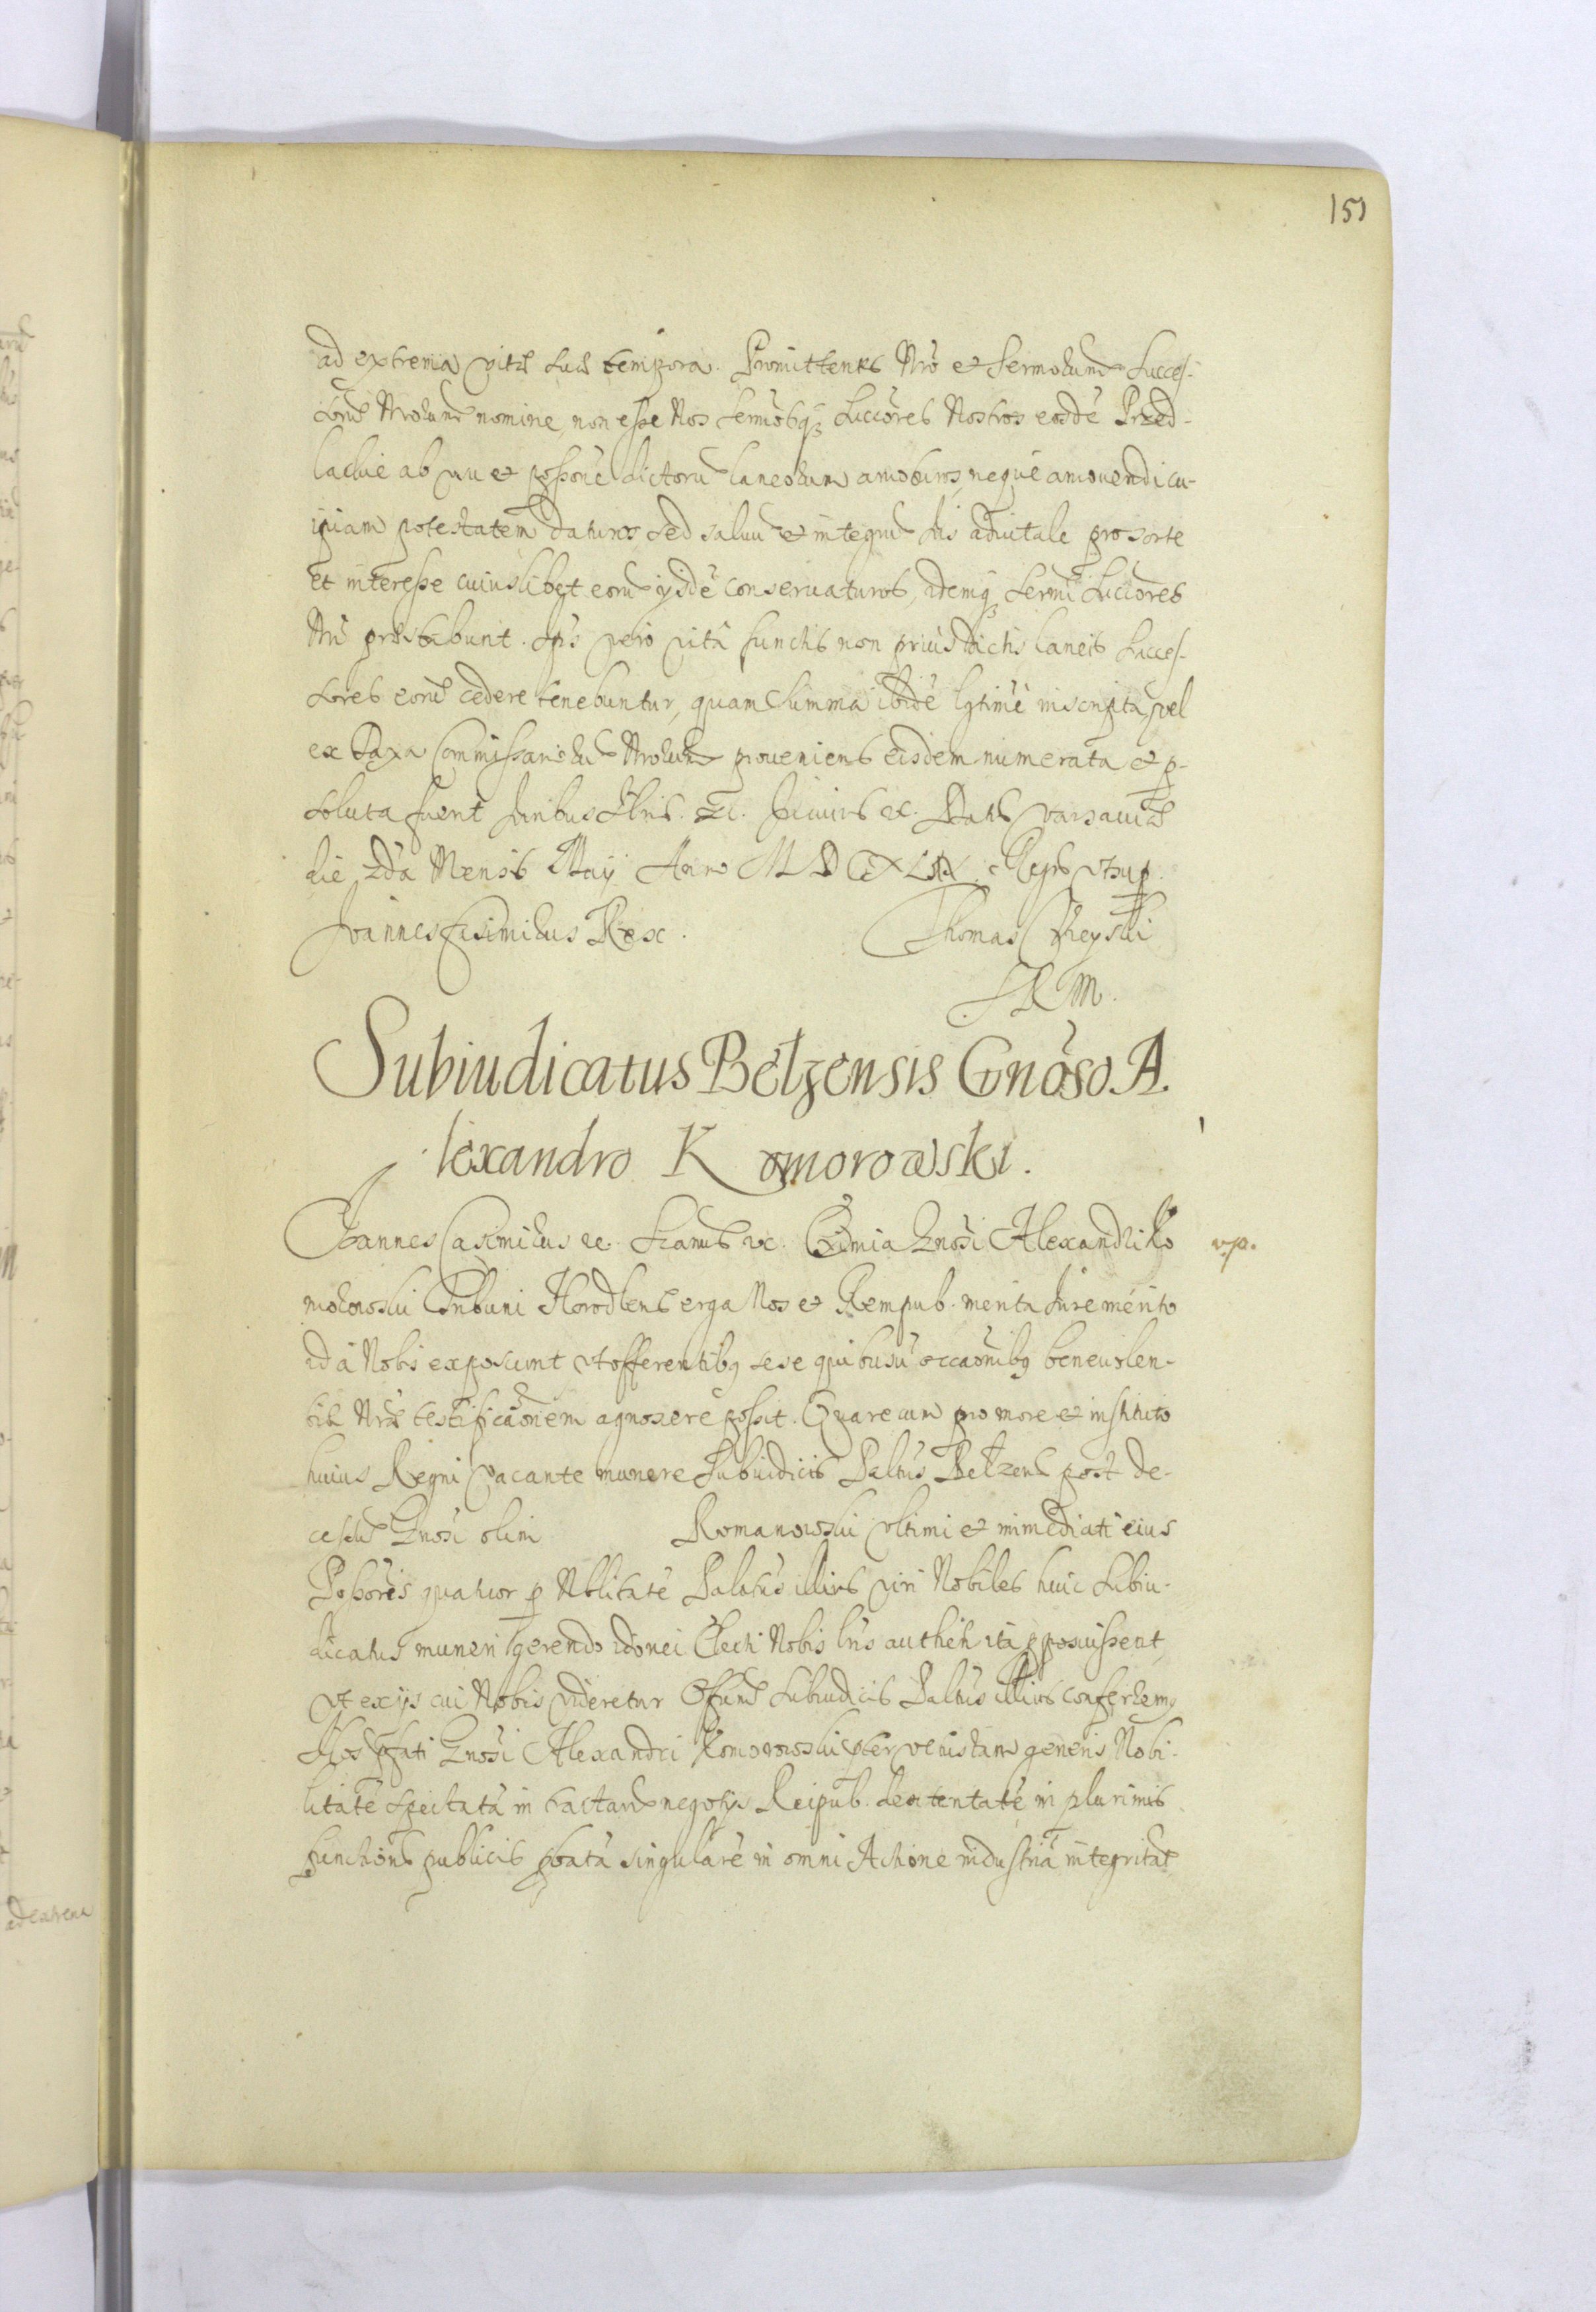 151
ad extrema vitæ suæ tempora. Promittentes Nro et Sermorum Succes-
sorum Nrorum nomine, non esse Nos Sermosq; Succores Nostros eosdē Przed-
lackie ab usu et possone dictorū laneorum amoturos, neque amouendi cu-
ipiam potestatem daturos sed saluū et integrū Jus aduitale pro sorte
et interesse cuiuslibet eorū ijsdē conseruaturos, idemq; Sermi Succores
Nri præstabunt. Ipsis vero vitâ functis non prius dictis laneis Succes-
sores eorū cedere tenebuntur, quam Summa ibidē lgtime inscripta, vel
ex Taxa Commissariorū Nrorum proueniens eisdem numerata et p-
soluta fuerit Juribus Nris. etc. In cuius etc. Datū Varsauiæ
die 2da Mensis Maij Anno MDCXLIX. Regn. vt sup.
Joannes Casimirus Rex. Thomas Vieyski
S R M.
Subiudicatus Belzensis Gnōso A.
lexandro Komorowski.
Joannes Casimirus etc. Significamus etc. Eximia Gnosi Alexandri Ko
v.p.
morowski Tribuni Horodlens erga Nos et Rempub. merita Jure merito
id à Nobis exposcunt vt offerentibq sese quibusuis occaōnibq beneuolen-
tiæ Nræ testificaōnem agnoscere possit. Quare cum pro more et instituto
huius Regni vacante munere Subiudicis Paltus Belzens post de-
cessum Gnosi olim Romanowski vltimi et immediati eius
Possoris quatuor p Nobilitatē Palatus illius viri Nobiles huic Subiu-
dicatus muneri gerendo idonei Electi Nobis lris authen ita pposuissent,
vt ex ijs cui Nobis videretur Offum Subiudicis Paltus illius conferremq
Nos pfati Gnosi Alexandri Komorowski pter vetustam generis Nobi-
litatē spectatā in tractand negotijs Reipub. dexteritatē in plurimis
functionibus publicis pbatā singularē in omni Actione industriā integritat